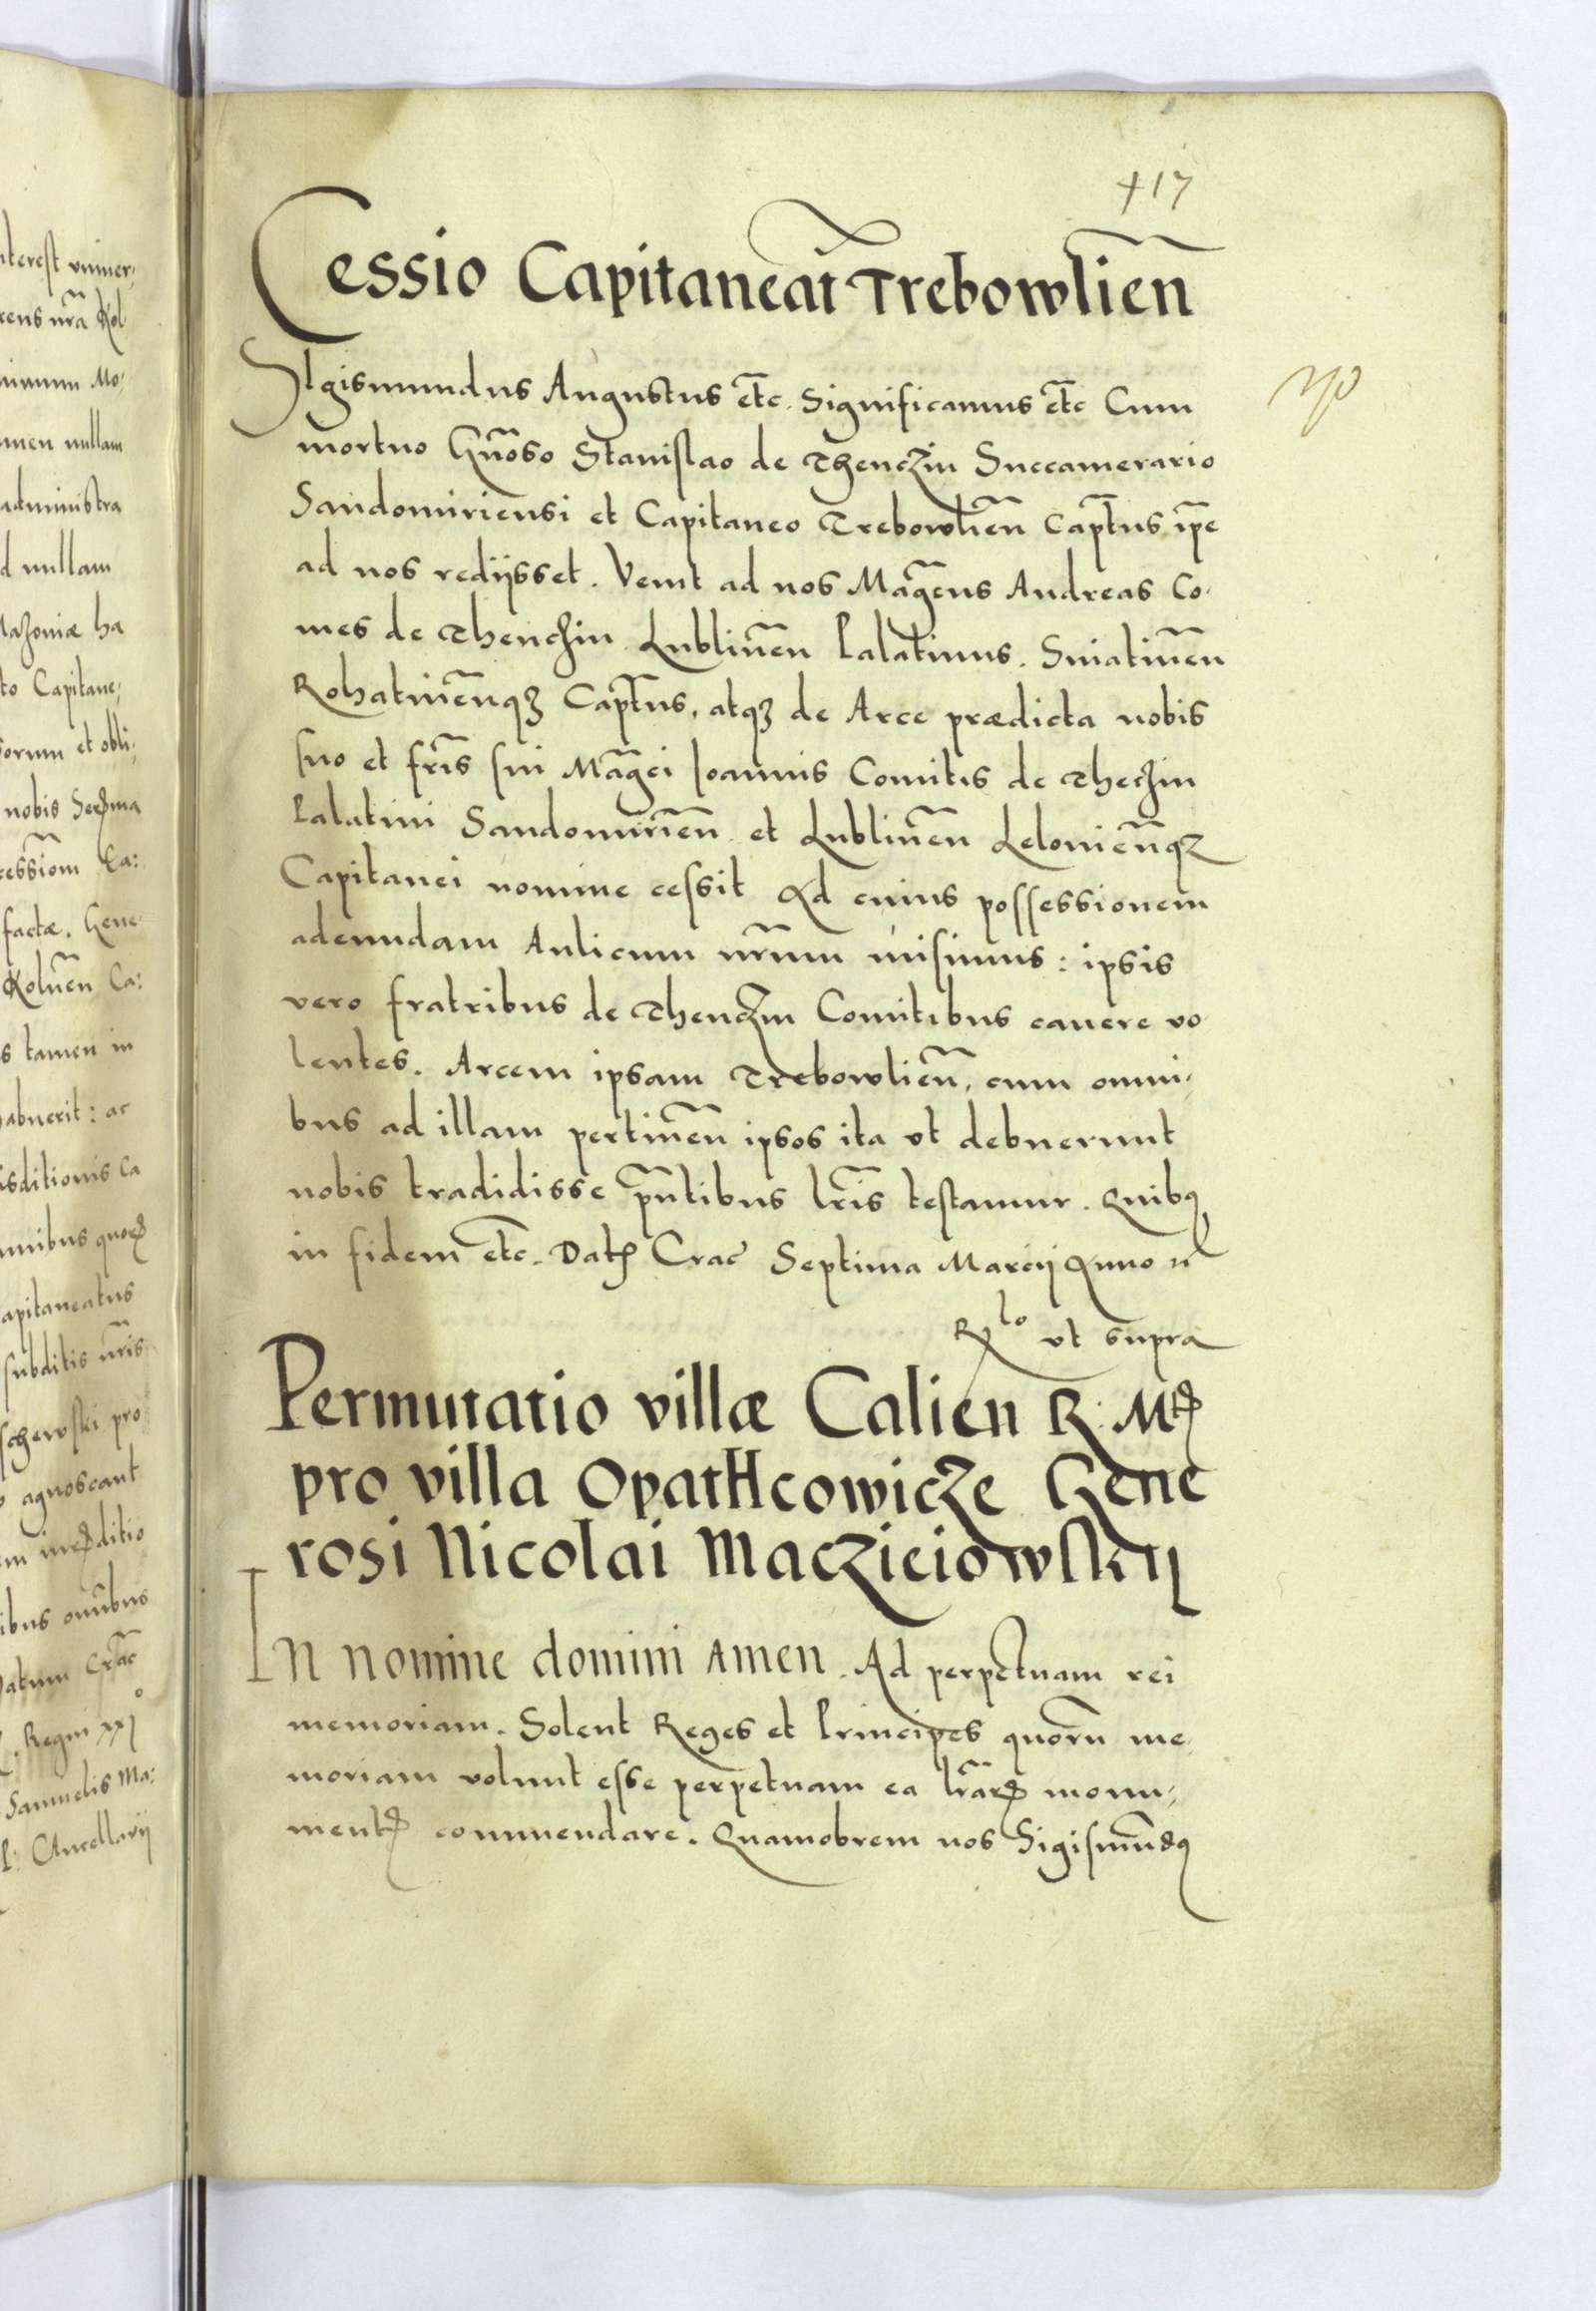 nterest vniuer,
rens nr̃a Kol
nimum Mo,
men nullam
administra
d nullam
Mazoniæ ha
to Capitane,
orum et obli,
nobis Serzma
cessiom Ca:
factæ. Gene
Koluen̄ Ca:
s tamen in
abuerit: ac
isditionis ca
mnibus quorꝝ
apitaneatus
subditis nr̃is
schewski pro
agnoscant
ibus omībus
atum Crac̄
Regni XXI°
Samuelis Ma:
P: Cancellarij
417
Cessio Capitaneat̄ Trebowlien̄
SIgismundus Augustus etc̄. Significamus etc̄ Cum
mortuo Gn̄oso Stanislao de Thenczin Succamerario
Sandomiriensi et Capitaneo Trebowlien̄ Capt̄us ip̄e
ad nos redijsset. Venit ad nos Mag̃cus Andreas Co,
mes de Thenczin Lublinen̄ Palatinus. Sniatinen̄
Rohatinen̄qꝫ Capt̄us, atqꝫ de Arce prædicta nobis
suo et fr̃is sui Mag̃ci Ioannis Comitis de Theczin
Palatini Sandomirien̄ et Lublinen̄ Lelouien̄qꝫ
Capitanei nomine cessit Ad cuius possessionem
adeundam Aulicum nr̃um misimus: ipsis
vero fratribus de Thenczin Comitibus cauere vo
lentes. Arcem ipsam Trebowlien̄, cum omni,
bus ad illam pertinen̄ ipsos ita vt debuerunt
nobis tradidisse p̄ntibus lr̃is testamur. Quibꝰ
in fidem etc̄. Datꝭ Crac̄ Septima Marcij Anno
R^lo vt supra
Permutatio villæ Calien R: Mtꝭ
pro villa Opathcowicze Gene
rosi Nicolai Macziciowskij
In nomine domini Amen. Ad perpetuam rei
memoriam. Solent Reges et Principes quorū me,
moriam volunt esse perpetuam ea lr̃arꝝ monu,
mentꝭ commendare. Quamobrem nos Sigismūdꝰ